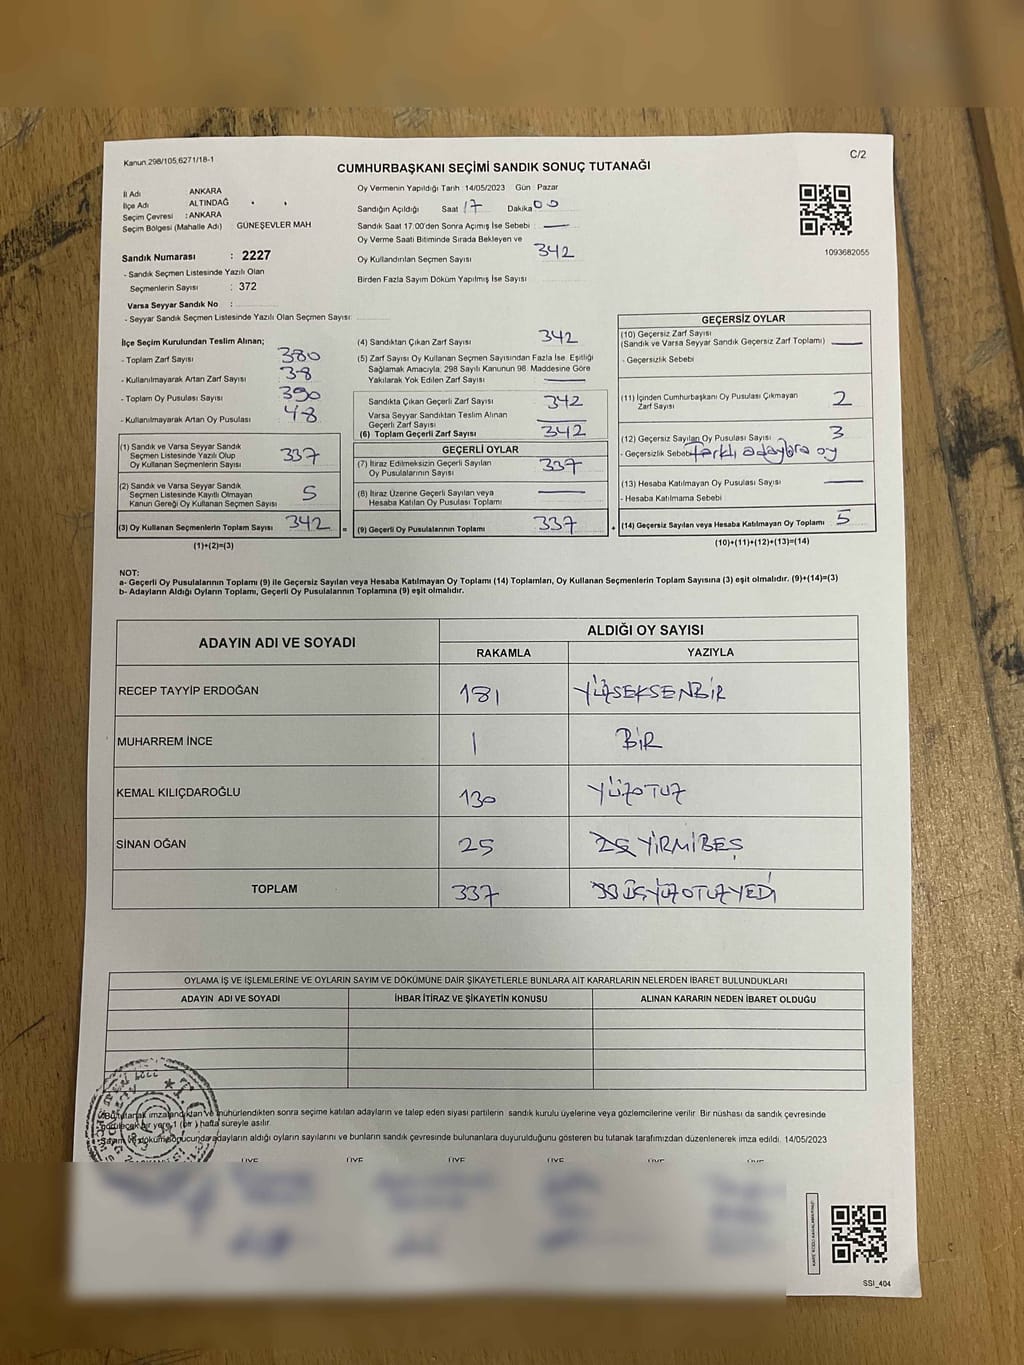 Kanun.298/105,6271/18-1
C/2
CUMHURBAŞKANI SEÇİMİ SANDIK SONUÇ TUTANAĞI
İl Adı ANKARA
İlçe Adı ALTINDAĞ
Seçim Çevresi : ANKARA
Seçim Bölgesi (Mahalle Adı) GÜNEŞEVLER MAH
Sandık Numarası : 2227
- Sandık Seçmen Listesinde Yazılı Olan
Seçmenlerin Sayısı : 372
Varsa Seyyar Sandık No :
- Seyyar Sandık Seçmen Listesinde Yazılı Olan Seçmen Sayısı:
Oy Vermenin Yapıldığı Tarih 14/05/2023 Gün Pazar
Sandığın Açıldığı Saat 17 Dakika 00
Sandık Saat 17:00'den Sonra Açımış İse Sebebi :
Oy Verme Saati Bitiminde Sırada Bekleyen ve
Oy Kullandırılan Seçmen Sayısı 342
Birden Fazla Sayım Döküm Yapılmış İse Sayısı
1093682055
İlçe Seçim Kurulundan Teslim Alınan;
- Toplam Zarf Sayısı 380
- Kullanılmayarak Artan Zarf Sayısı 38
- Toplam Oy Pusulası Sayısı 390
- Kullanılmayarak Artan Oy Pusulası 48
(1) Sandık ve Varsa Seyyar Sandık
Seçmen Listesinde Yazılı Olup
Oy Kullanan Seçmenlerin Sayısı 337
(2) Sandık ve Varsa Seyyar Sandık
Seçmen Listesinde Kayıtlı Olmayan
Kanun Gereği Oy Kullanan Seçmen Sayısı 5
(3) Oy Kullanan Seçmenlerin Toplam Sayısı 342 =
(1)+(2)=(3)
(4) Sandıktan Çıkan Zarf Sayısı 342
(5) Zarf Sayısı Oy Kullanan Seçmen Sayısından Fazla İse, Eşitliği
Sağlamak Amacıyla, 298 Sayılı Kanunun 98. Maddesine Göre
Yakılarak Yok Edilen Zarf Sayısı
Sandıkta Çıkan Geçerli Zarf Sayısı 342
Varsa Seyyar Sandıktan Teslim Alınan
Geçerli Zarf Sayısı
(6) Toplam Geçerli Zarf Sayısı 342
GEÇERLİ OYLAR
(7) İtiraz Edilmeksizin Geçerli Sayılan
Oy Pusulalarının Sayısı 337
(8) İtiraz Üzerine Geçerli Sayılan veya
Hesaba Katılan Oy Pusulası Toplamı
(9) Geçerli Oy Pusulalarının Toplamı 337 +
GEÇERSİZ OYLAR
(10) Geçersiz Zarf Sayısı
(Sandık ve Varsa Seyyar Sandık Geçersiz Zarf Toplamı)
- Geçersizlik Sebebi
(11) İçinden Cumhurbaşkanı Oy Pusulası Çıkmayan
Zarf Sayısı 2
(12) Geçersiz Sayılan Oy Pusulası Sayısı 3
- Geçersizlik Sebebi Farklı adaylara oy
(13) Hesaba Katılmayan Oy Pusulası Sayısı
- Hesaba Katılmama Sebebi
(14) Geçersiz Sayılan veya Hesaba Katılmayan Oy Toplamı 5
(10)+(11)+(12)+(13)=(14)
NOT:
a- Geçerli Oy Pusulalarının Toplamı (9) ile Geçersiz Sayılan veya Hesaba Katılmayan Oy Toplamı (14) Toplamları, Oy Kullanan Seçmenlerin Toplam Sayısına (3) eşit olmalıdır. (9)+(14)=(3)
b- Adayların Aldığı Oyların Toplamı, Geçerli Oy Pusulalarının Toplamına (9) eşit olmalıdır.
ADAYIN ADI VE SOYADI
ALDIĞI OY SAYISI
RAKAMLA YAZIYLA
RECEP TAYYİP ERDOĞAN 181 YÜZSEKSENBİR
MUHARREM İNCE 1 BİR
KEMAL KILIÇDAROĞLU 130 YÜZOTUZ
SİNAN OĞAN 25 YİRMİBEŞ
TOPLAM 337 ÜÇYÜZOTUZYEDİ
OYLAMA İŞ VE İŞLEMLERİNE VE OYLARIN SAYIM VE DÖKÜMÜNE DAİR ŞİKAYETLERLE BUNLARA AİT KARARLARIN NELERDEN İBARET BULUNDUKLARI
ADAYIN ADI VE SOYADI İHBAR İTİRAZ VE ŞİKAYETİN KONUSU ALINAN KARARIN NEDEN İBARET OLDUĞU
mühürlendikten sonra seçime katılan adayların ve talep eden siyasi partilerin sandık kurulu üyelerine veya gözlemcilerine verilir. Bir nüshası da sandık çevresinde
bir yere 1 (bir) hafta süreyle asılır.
adayların aldığı oyların sayılarını ve bunların sandık çevresinde bulunanlara duyurulduğunu gösteren bu tutanak tarafımızdan düzenlenerek imza edildi. 14/05/2023
ÜYE ÜYE ÜYE ÜYE
SSI_404